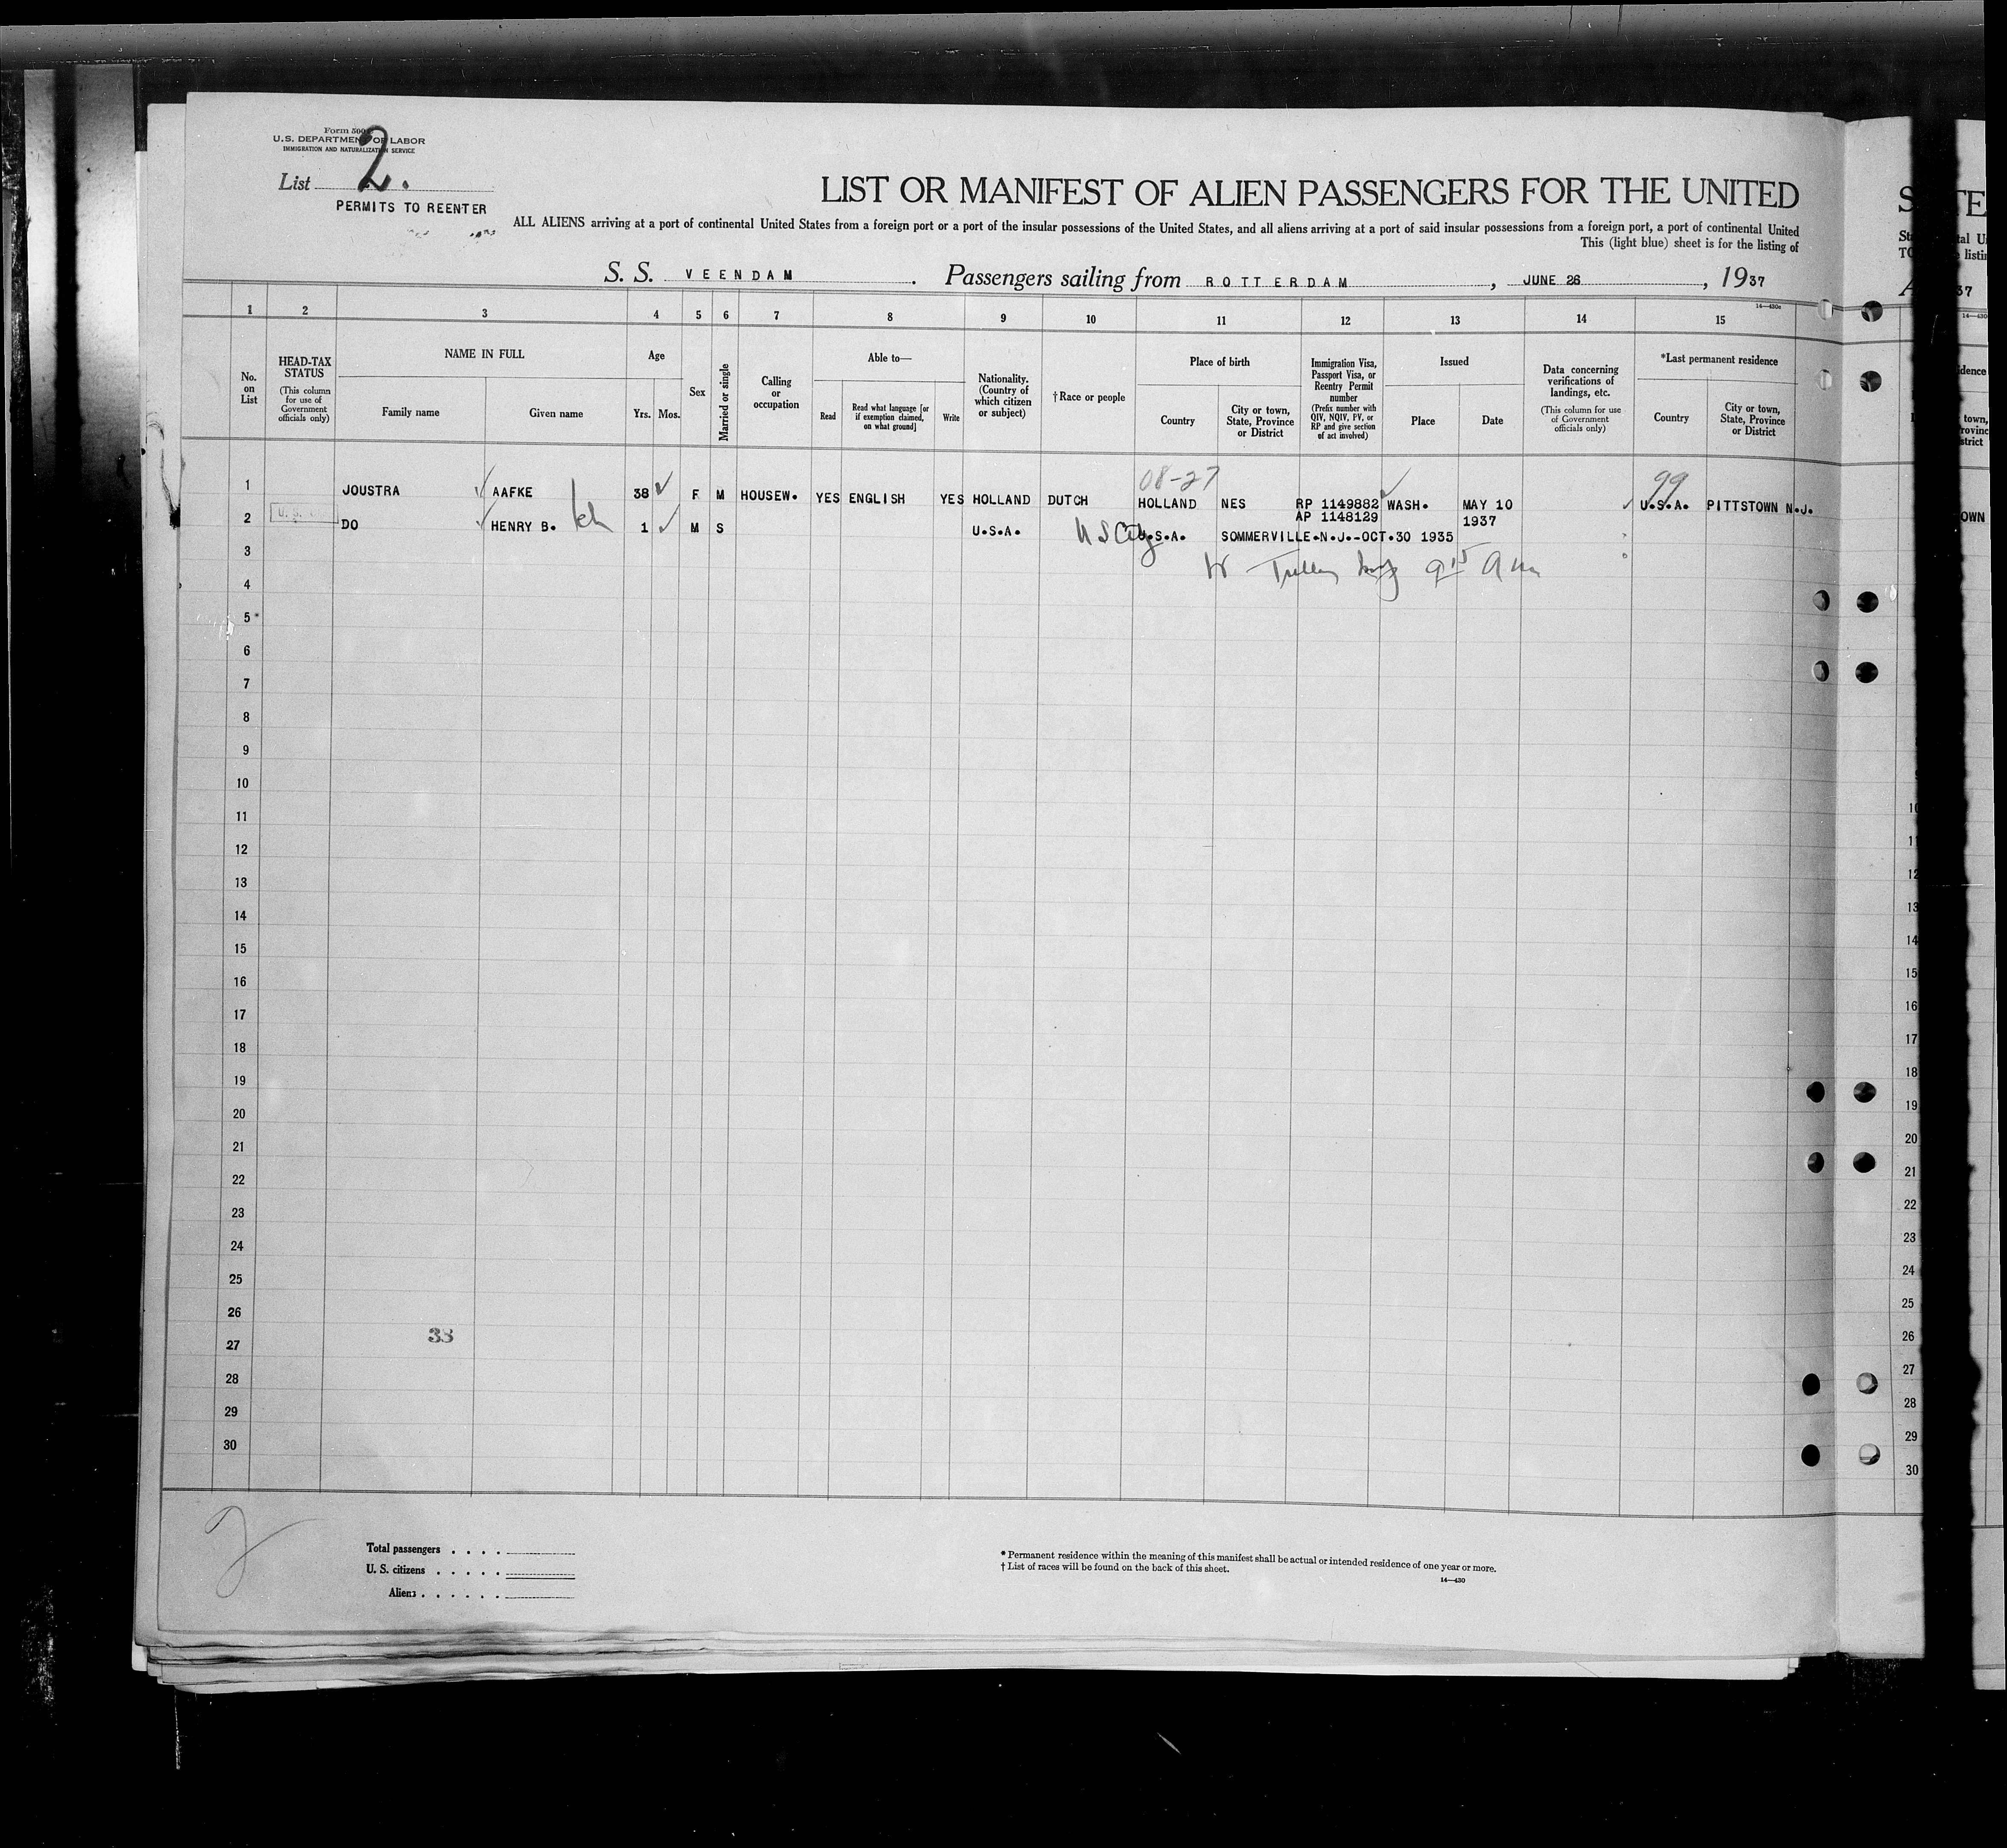 Form 500
U.S. DEPARTMENT OF LABOR
IMMIGRATION AND NATURALIZATION SERVICE
List 2.
PERMITS TO REENTER
LIST OR MANIFEST OF ALIEN PASSENGERS FOR THE UNITED
ALL ALIENS arriving at a port of continental United States from a foreign port or a port of the insular possessions of the United States, and all aliens arriving at a port of said insular possessions from a foreign port, a port of continental United
This (light blue) sheet is for the listing of
S. S. VEENDAM. Passengers sailing from ROTTERDAM, JUNE 26, 1937
14—430c
1 2 3 4 5 6 7 8 9 10 11 12 13 14 15
No. on List
HEAD-TAX STATUS
(This column for use of Government officials only)
NAME IN FULL
Family name
Given name
Age
Yrs. Mos.
Sex
Married or single
Calling or occupation
Able to—
Read
Read what language [or if exemption claimed, on what ground]
Write
Nationality. (Country of which citizen or subject)
†Race or people
Place of birth
Country
City or town, State, Province or District
Immigration Visa, Passport Visa, or Reentry Permit number
(Prefix number with QIV, NQIV, PV, or RP and give section of act involved)
Issued
Place
Date
Data concerning verifications of landings, etc.
(This column for use of Government officials only)
*Last permanent residence
Country
City or town, State, Province or District
08-27
99
1 JOUSTRA AAFKE 38 F M HOUSEW. YES ENGLISH YES HOLLAND DUTCH HOLLAND NES RP 1149882 WASH. MAY 10 U.S.A. PITTSTOWN N.J.
AP 1148129 1937
2 DO HENRY B. 1 M S U.S.A. U.S.A. SOMMERVILLE.N.J.-OCT.30 1935
3
4
5
6
7
8
9
10
11
12
13
14
15
16
17
18
19
20
21
22
23
24
25
26
38
27
28
29
30
2
Total passengers . . . .
U. S. citizens . . . . .
Aliens . . . . . .
* Permanent residence within the meaning of this manifest shall be actual or intended residence of one year or more.
† List of races will be found on the back of this sheet.
14—430